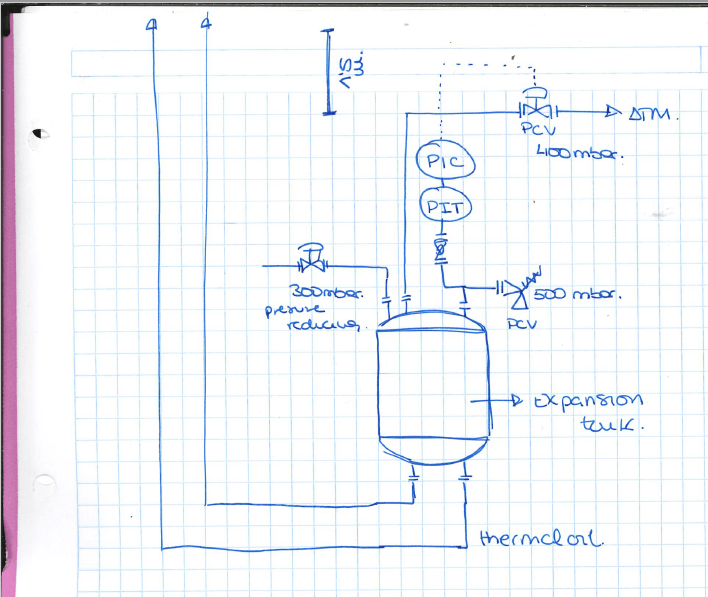 <15
m.
ATM.
PCV
400 mbar.
PIC
PIT
300mbar.
pressure
reducing.
500 mbar.
PCV
expansion
tank.
thermal oil.